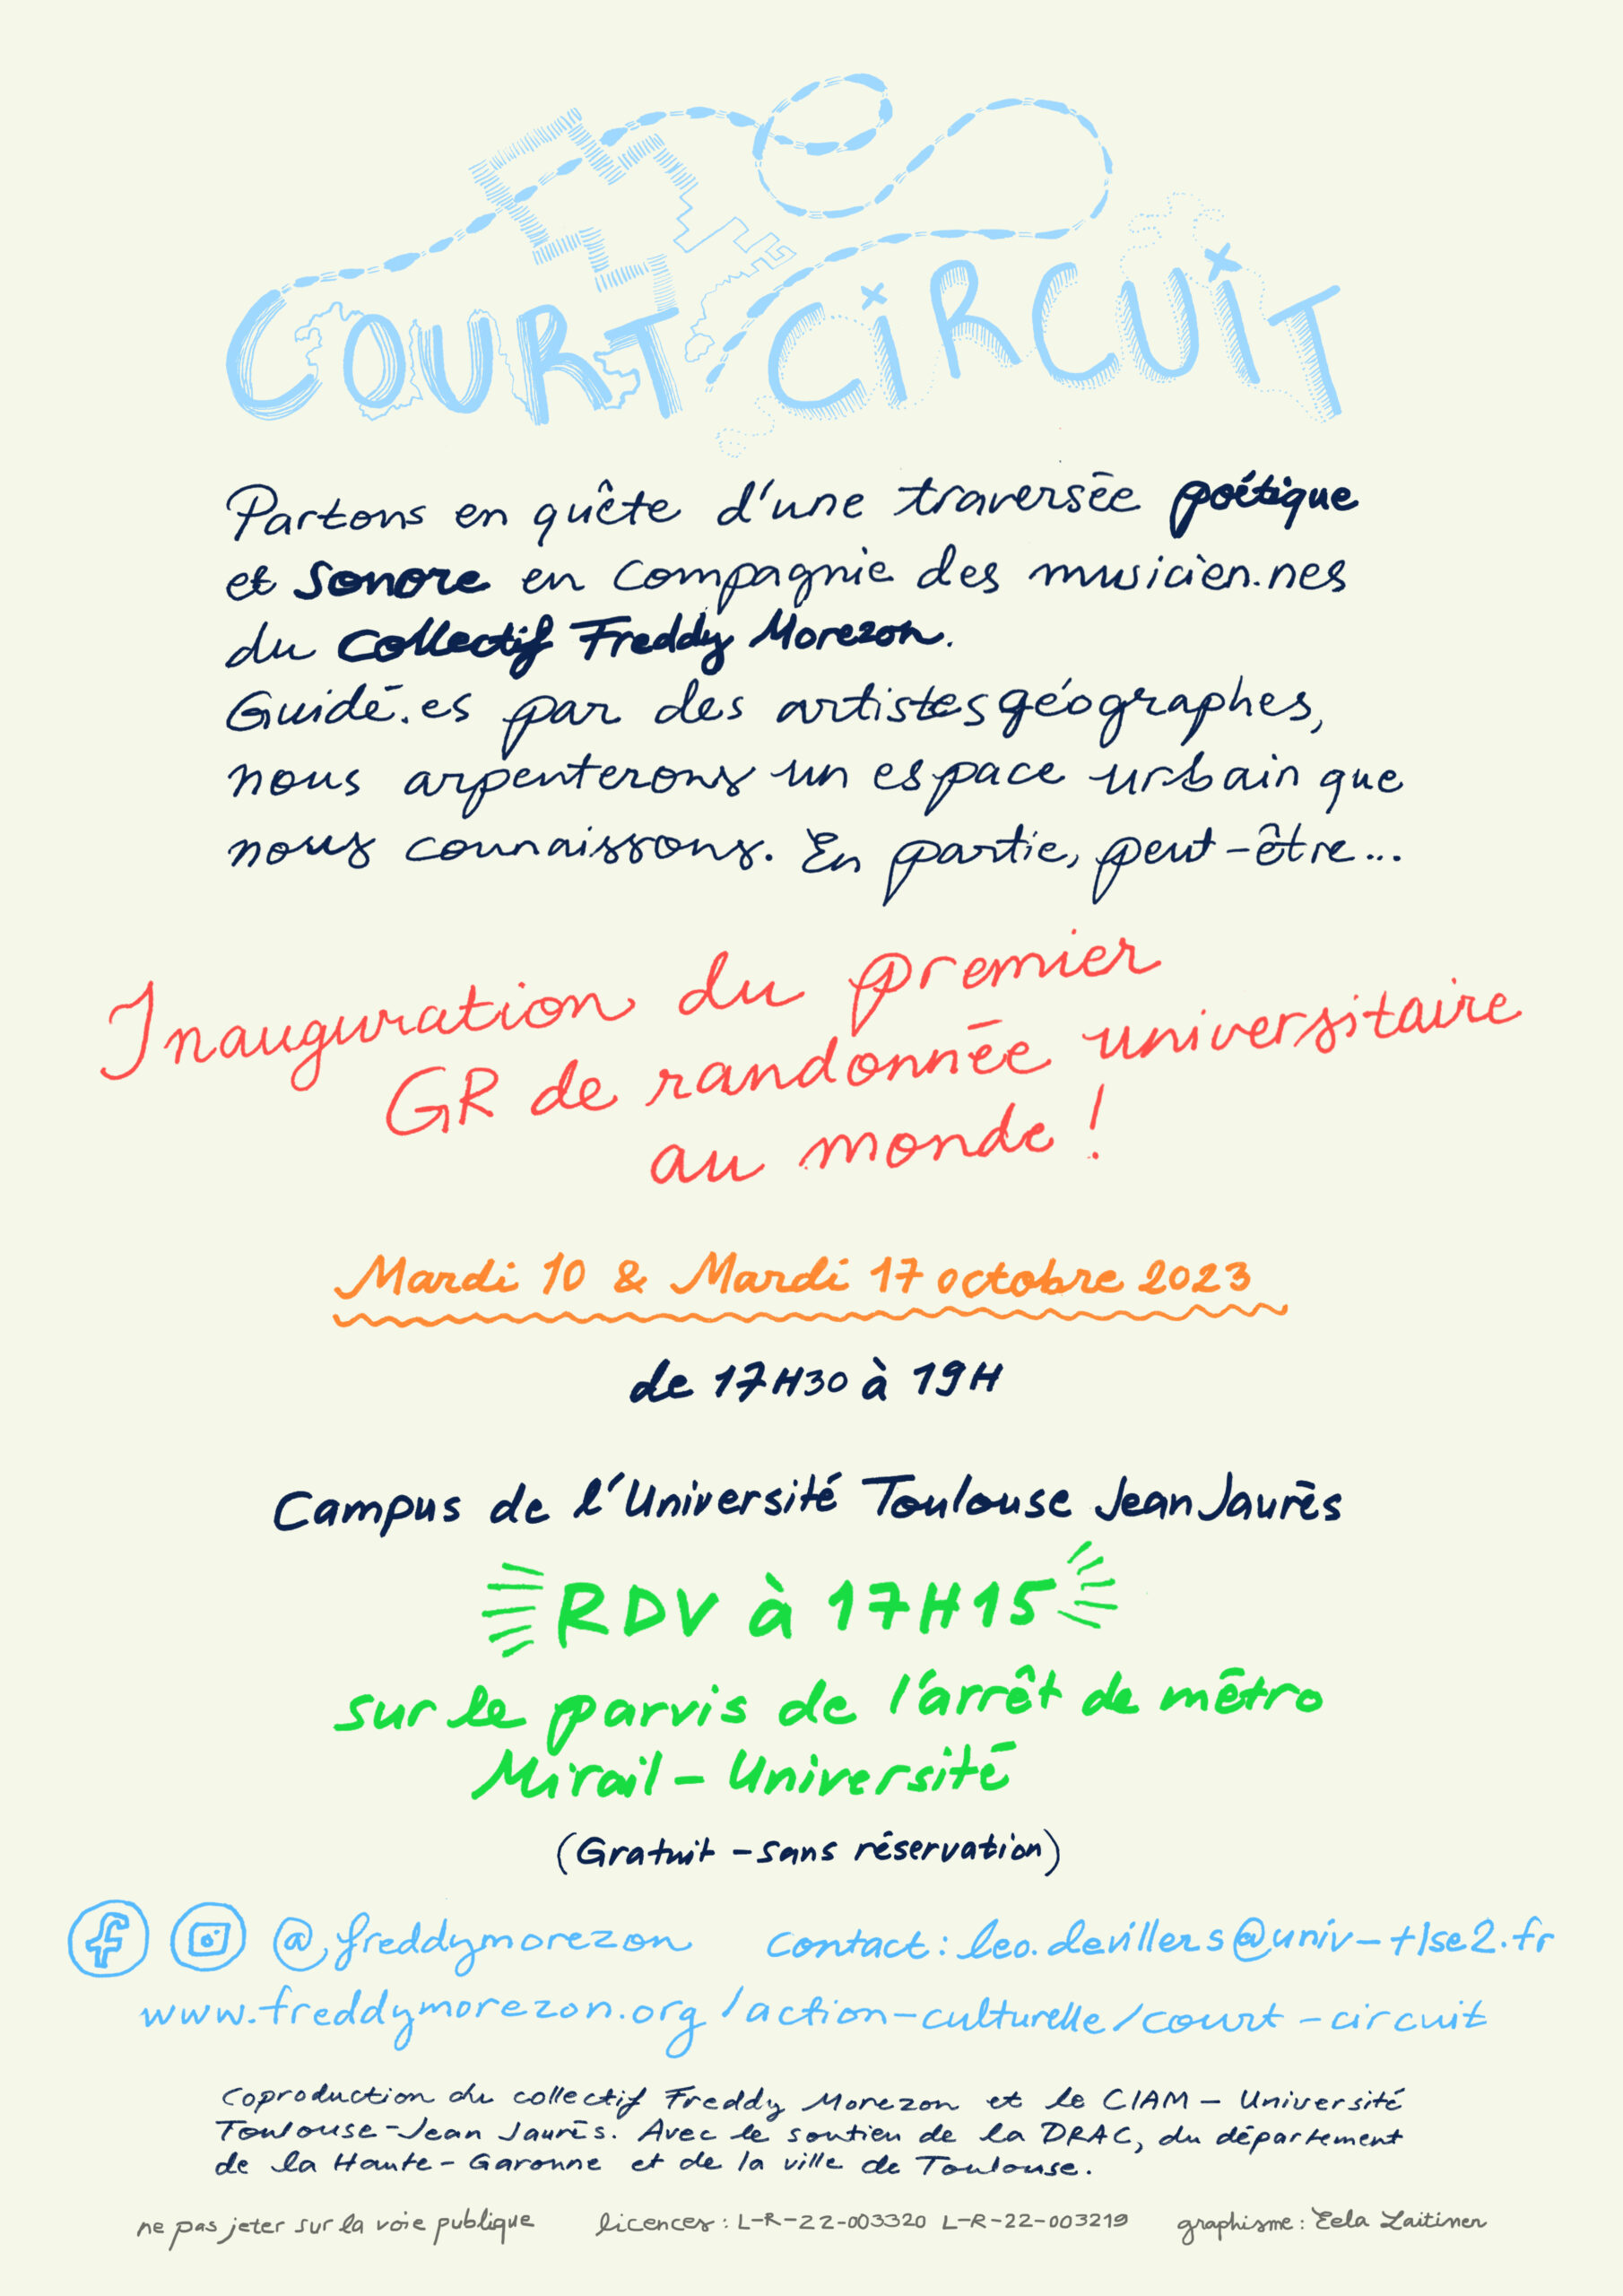 COURT CIRCUIT
Partons en quête d'une traversée poétique
et sonore en compagnie des musicien.nes
du Collectif Freddy Morezon.
Guidé.es par des artistes géographes,
nous arpenterons un espace urbain que
nous connaissons. En partie, peut-être...
Inauguration du premier
GR de randonnée universitaire
au monde !
Mardi 10 & Mardi 17 octobre 2023
de 17H30 à 19H
Campus de l'Université Toulouse Jean Jaurès
RDV à 17H15
sur le parvis de l'arrêt de métro
Mirail - Université
(Gratuit - sans réservation)
@freddymorezon contact : leo.devillers@univ-tlse2.fr
www.freddymorezon.org/action-culturelle/court-circuit
Coproduction du collectif Freddy Morezon et le CIAM - Université
Toulouse-Jean Jaurès. Avec le soutien de la DRAC, du département
de la Haute-Garonne et de la ville de Toulouse.
ne pas jeter sur la voie publique licences : L-R-22-003320 L-R-22-003219 graphisme : Eela Laitinen